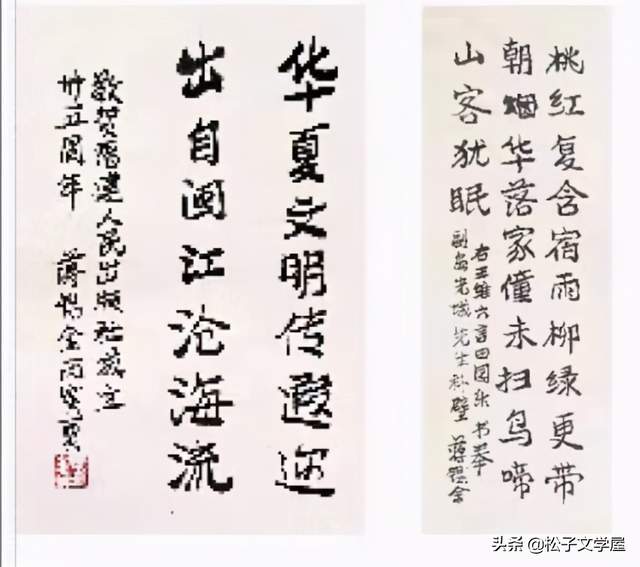 华夏文明传遐迩
出自闽江沧海流
敬贺福建人民出版社成立
卅五周年 蒋锡金丙寅夏
桃红复含宿雨柳绿更带
朝烟华落家僮未扫鸟啼
山客犹眠
右王维六言田园乐书奉
先生补壁 蒋锡金
头条 @松子文学屋